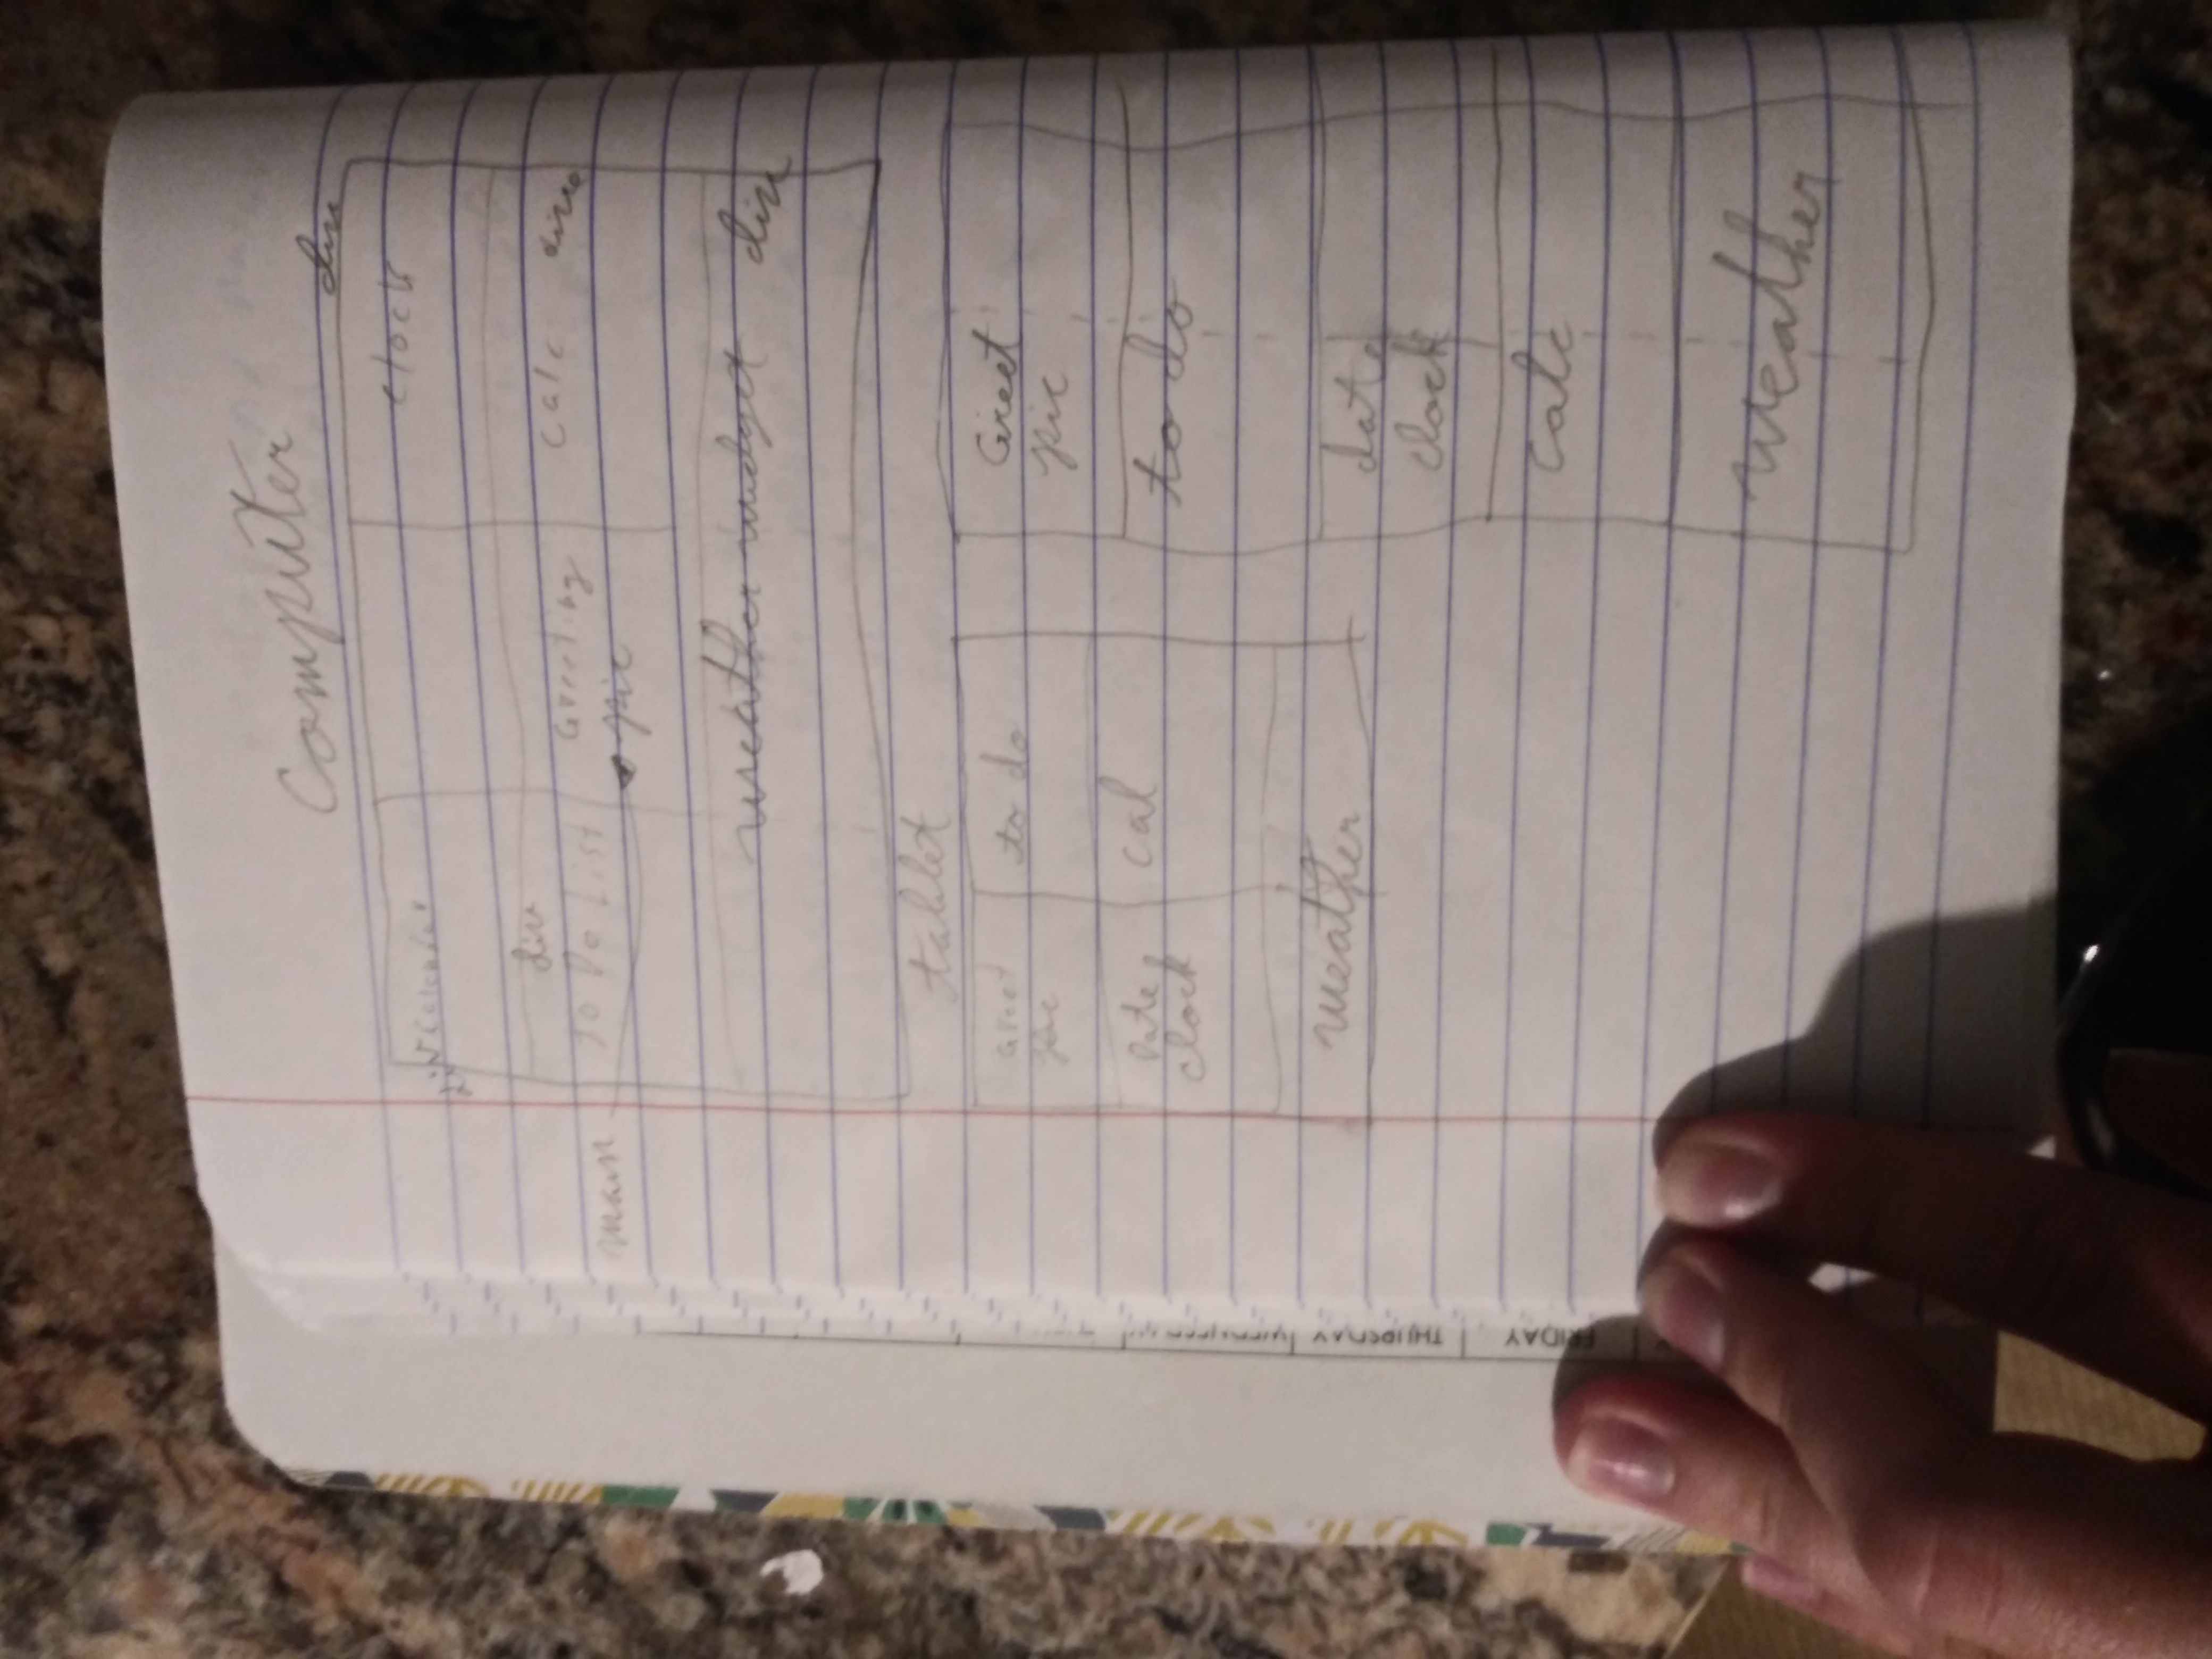 Computer
div
div calendar
clock
div
To Do List
Greeting
pic
calc
main
weather widget div
tablet
Greet
pic
to do
Date
clock
cal
weather
Greet
pic
to do
date
clock
calc
weather
THURSDAY
FRIDAY